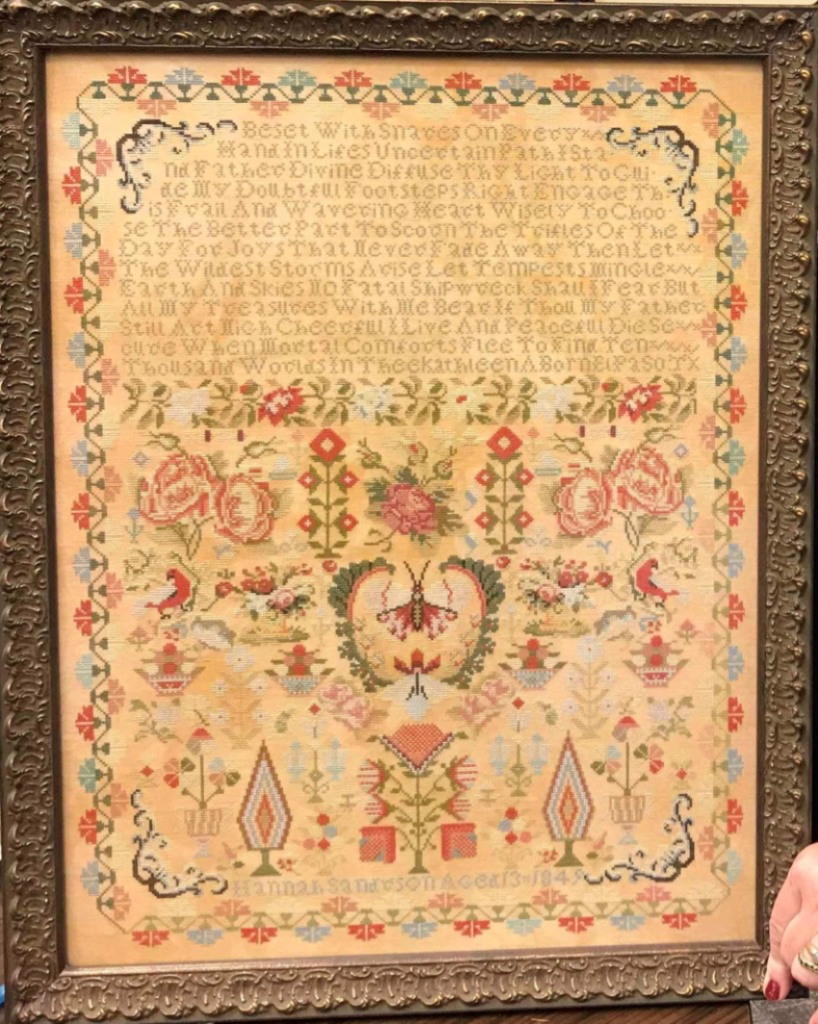 Beset With Snares On Every
Hand In Lifes Uncertain Path I Sta-
nd Father Divine Diffuse Thy Light To Gui-
de My Doubtful Footsteps Right Engage Th
is Frail And Wavering Heart Wisely To Choo-
se The Better Part To Scorn The Trifles Of The
Day For Joys That Never Fade Away Then Let
The Wildest Storms Arise Let Tempests Mingle
Earth And Skies No Fatal Shipwreck Shall I Fear But
All My Treasures With Me Bear If Thou My Father
Still Art Nigh Cheerful I Live And Peaceful Die Se
cure When Mortal Comforts Flee To Find Ten
Thousand Worlds In Thee Kathleen A Borne El Paso TX
Hannah Sanderson Aged 13